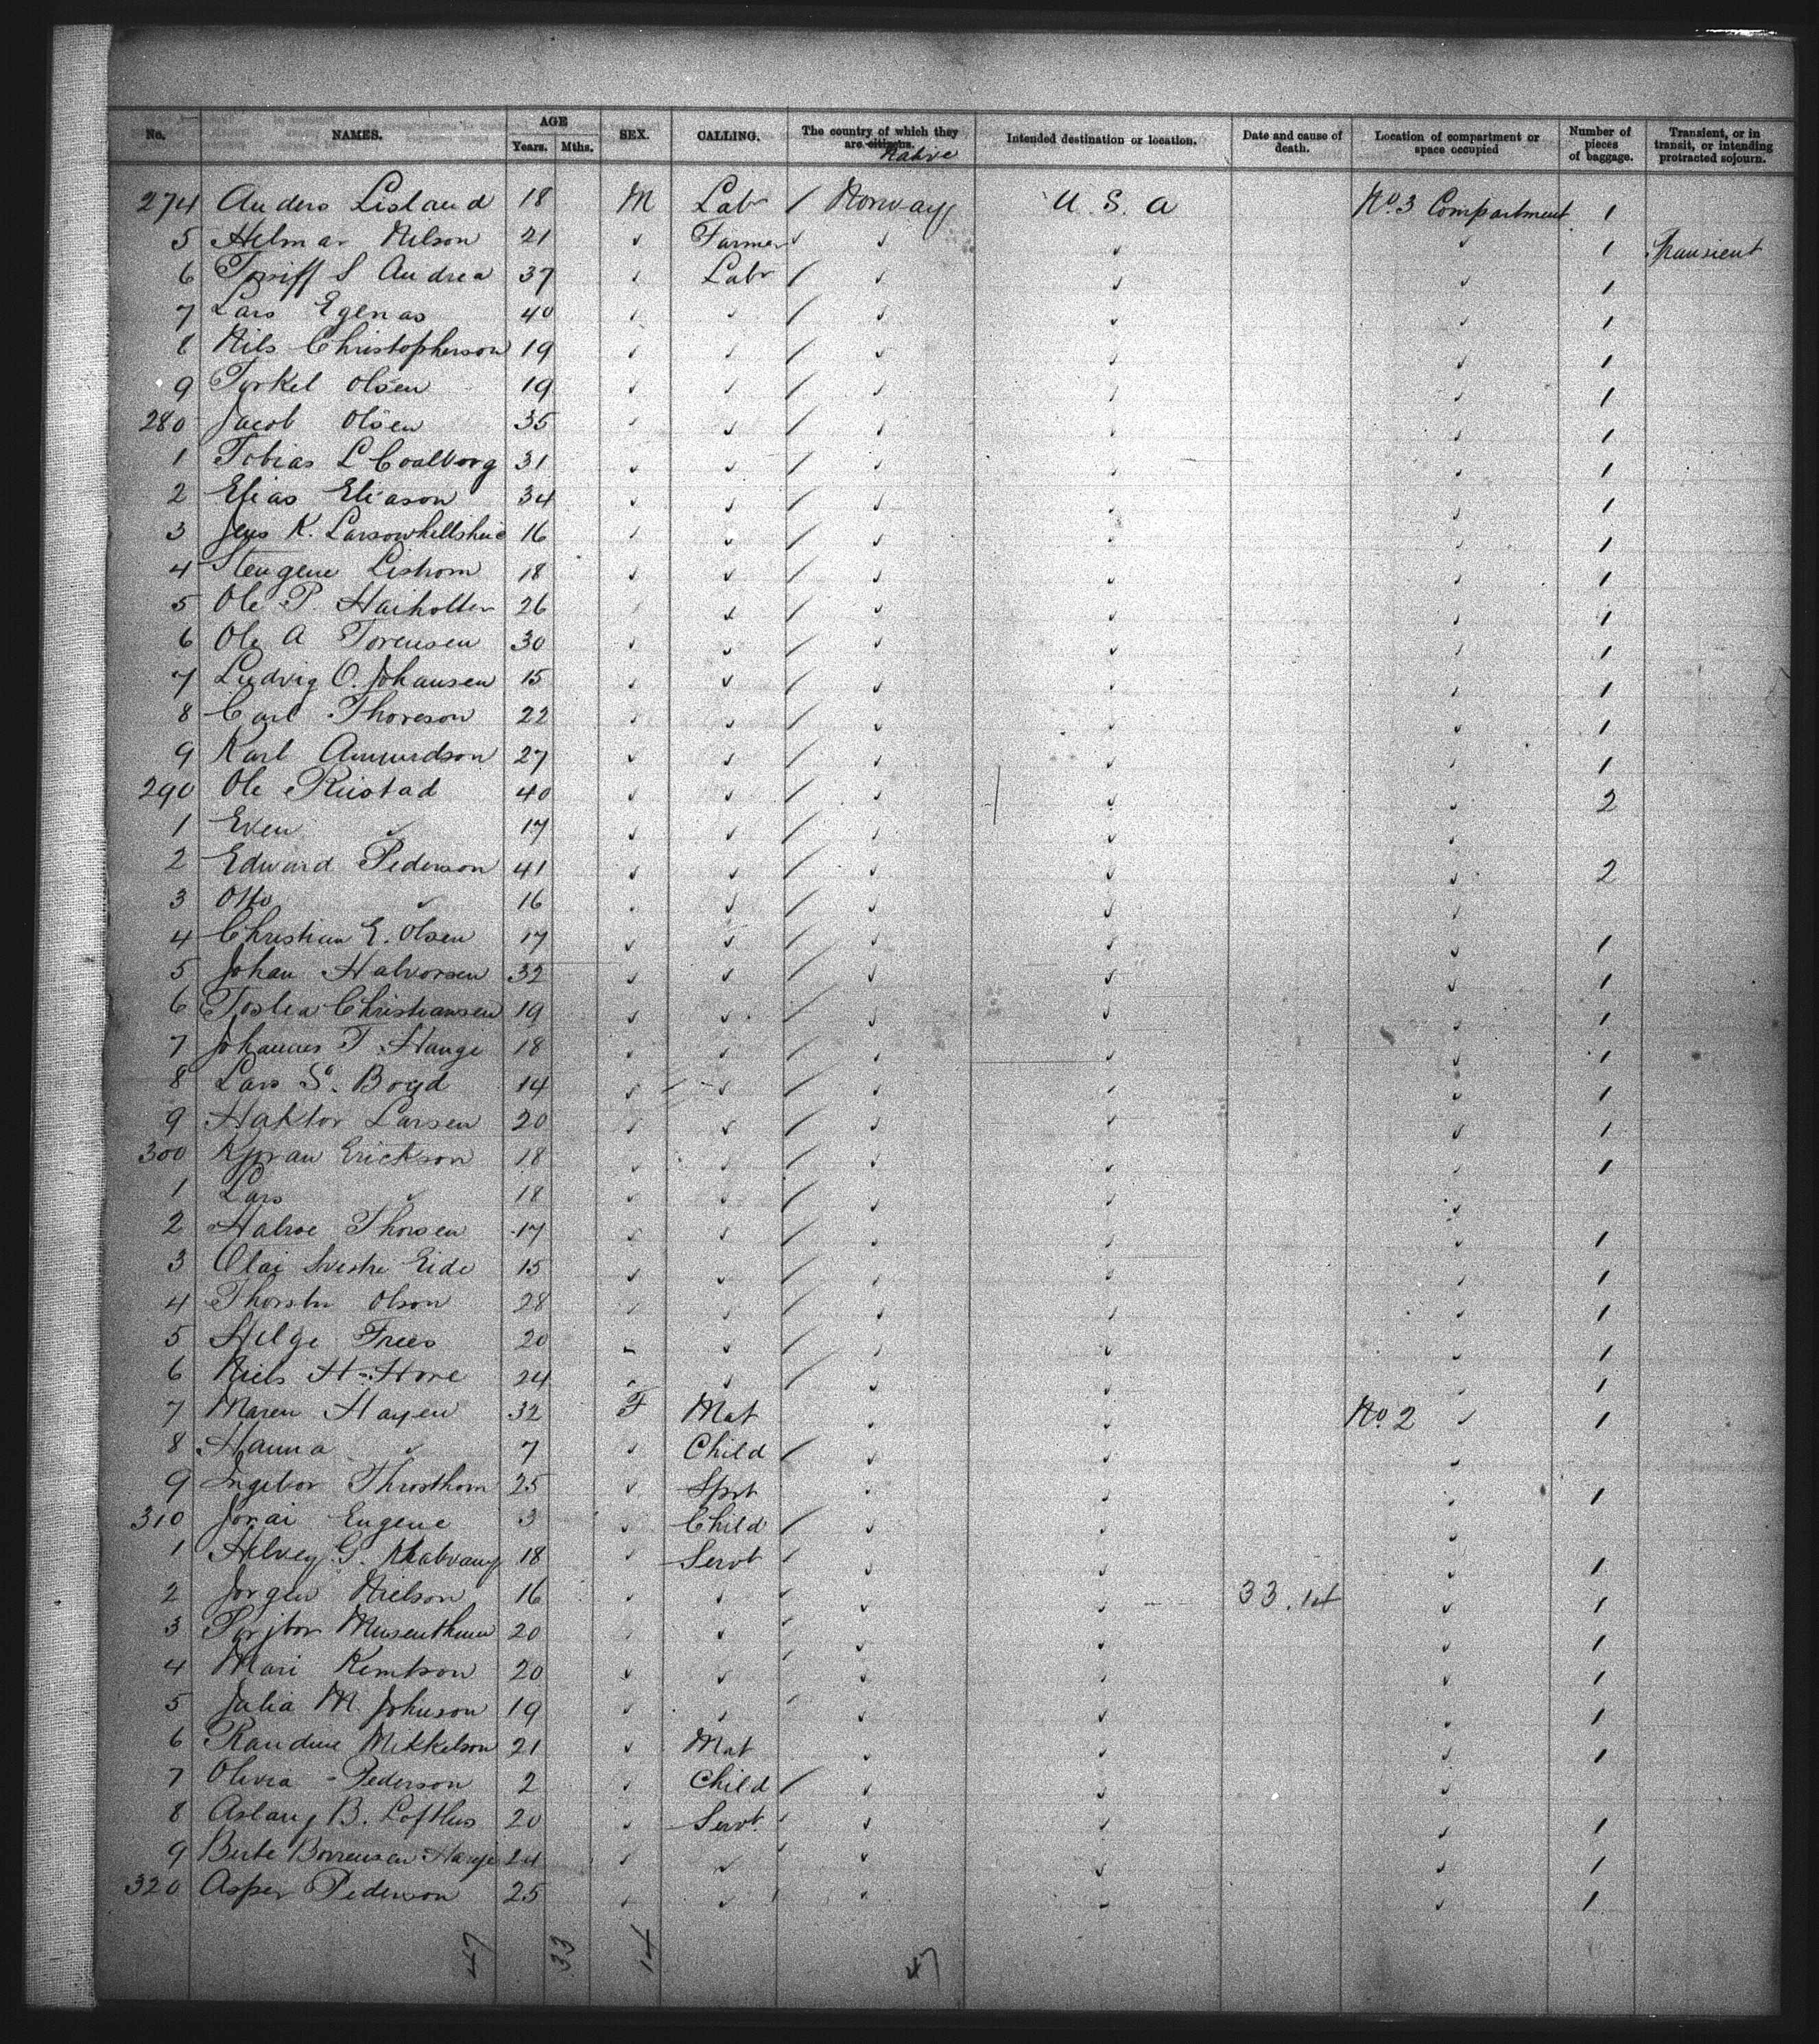 No. NAMES. AGE Years. Mths. SEX. CALLING. The country of which they are citizens. Native Intended destination or location. Date and cause of death. Location of compartment or space occupied Number of pieces of baggage. Transient, or in transit, or intending protracted sojourn.
274 Anders Lisland 18 M Labr / Norway U. S. A No. 3 Compartment 1
5 Hilmar Nilson 21 ✓ Farmer ✓ ✓ ✓ ✓ 1 Transient
6 S Andrea 37 ✓ Labr / ✓ ✓ ✓ 1
7 Lars Egenas 40 ✓ ✓ / ✓ ✓ ✓ 1
8 Nils Christopherson 19 ✓ ✓ / ✓ ✓ ✓ 1
9 Torkel Olsen 19 ✓ ✓ / ✓ ✓ ✓ 1
280 Jacob Olsen 35 ✓ ✓ / ✓ ✓ ✓ 1
1 Tobias L 31 ✓ ✓ / ✓ ✓ ✓ 1
2 Elias Eliason 34 ✓ ✓ / ✓ ✓ ✓ 1
3 Jens K. 16 ✓ ✓ / ✓ ✓ ✓ 1
4 18 ✓ ✓ / ✓ ✓ ✓ 1
5 Ole P. Haiholter 26 ✓ / ✓ ✓ ✓ 1
6 Ole A Torensen 30 ✓ ✓ / ✓ ✓ ✓ 1
7 Ludvig O. Johansen 15 ✓ ✓ / ✓ ✓ ✓ 1
8 Carl Thoreson 22 ✓ ✓ / ✓ ✓ ✓ 1
9 Karl Amundson 27 ✓ ✓ / ✓ ✓ ✓ 1
290 Ole Rustad 40 ✓ ✓ / ✓ ✓ ✓ 2
1 Even ✓ 17 ✓ ✓ / ✓ ✓ ✓
2 Edward Pederson 41 ✓ ✓ / ✓ ✓ ✓ 2
3 Otto ✓ 16 ✓ ✓ / ✓ ✓ ✓
4 Christian E. Olsen 17 ✓ ✓ / ✓ ✓ ✓ 1
5 Johan Halvorsen 32 ✓ ✓ / ✓ ✓ ✓ 1
6 Christiansen 19 ✓ ✓ / ✓ ✓ ✓ 1
7 Johannes T. Hauge 18 ✓ ✓ / ✓ ✓ ✓ 1
8 Lars S. Boyd 14 ✓ ✓ / ✓ ✓ ✓ 1
9 Haktor Larsen 20 ✓ ✓ / ✓ ✓ ✓ 1
300 Erickson 18 ✓ ✓ / ✓ ✓ ✓ 1
1 Lars ✓ 18 ✓ ✓ / ✓ ✓ ✓
2 Halvoe Thorsen 17 ✓ ✓ / ✓ ✓ ✓ 1
3 Olai Eide 15 ✓ ✓ / ✓ ✓ ✓ 1
4 Olson 28 ✓ ✓ / ✓ ✓ ✓ 1
5 Helge Frees 20 ✓ ✓ / ✓ ✓ ✓ 1
6 Niels H. Hove 24 ✓ ✓ / ✓ ✓ ✓ 1
7 Maren Hayen 32 F Mat ✓ ✓ No. 2 ✓ 1
8 Hanna ✓ 7 ✓ Child / ✓ ✓ ✓
9 Ingebor 25 ✓ Spst ✓ ✓ ✓ 1
310 Eugene 3 ✓ Child / ✓ ✓ ✓
1 G. 18 ✓ Servt / ✓ ✓ ✓ 1
2 Jorgen Nielson 16 ✓ ✓ / ✓ ✓ 33.14 ✓ 1
3 20 ✓ ✓ / ✓ ✓ ✓ 1
4 Mari 20 ✓ ✓ ✓ ✓ ✓ 1
5 Julia M. Johnson 19 ✓ ✓ / ✓ ✓ ✓ 1
6 Randine Mikkelson 21 ✓ Mat ✓ ✓ ✓ 1
7 Olivia Pederson 2 ✓ Child / ✓ ✓ ✓
8 Aslaug B. Lofthus 20 ✓ Servt. / ✓ ✓ ✓ 1
9 24 ✓ ✓ / ✓ ✓ ✓ 1
320 Asper Pederson 25 ✓ ✓ / ✓ ✓ ✓ 1
47 33 14 47